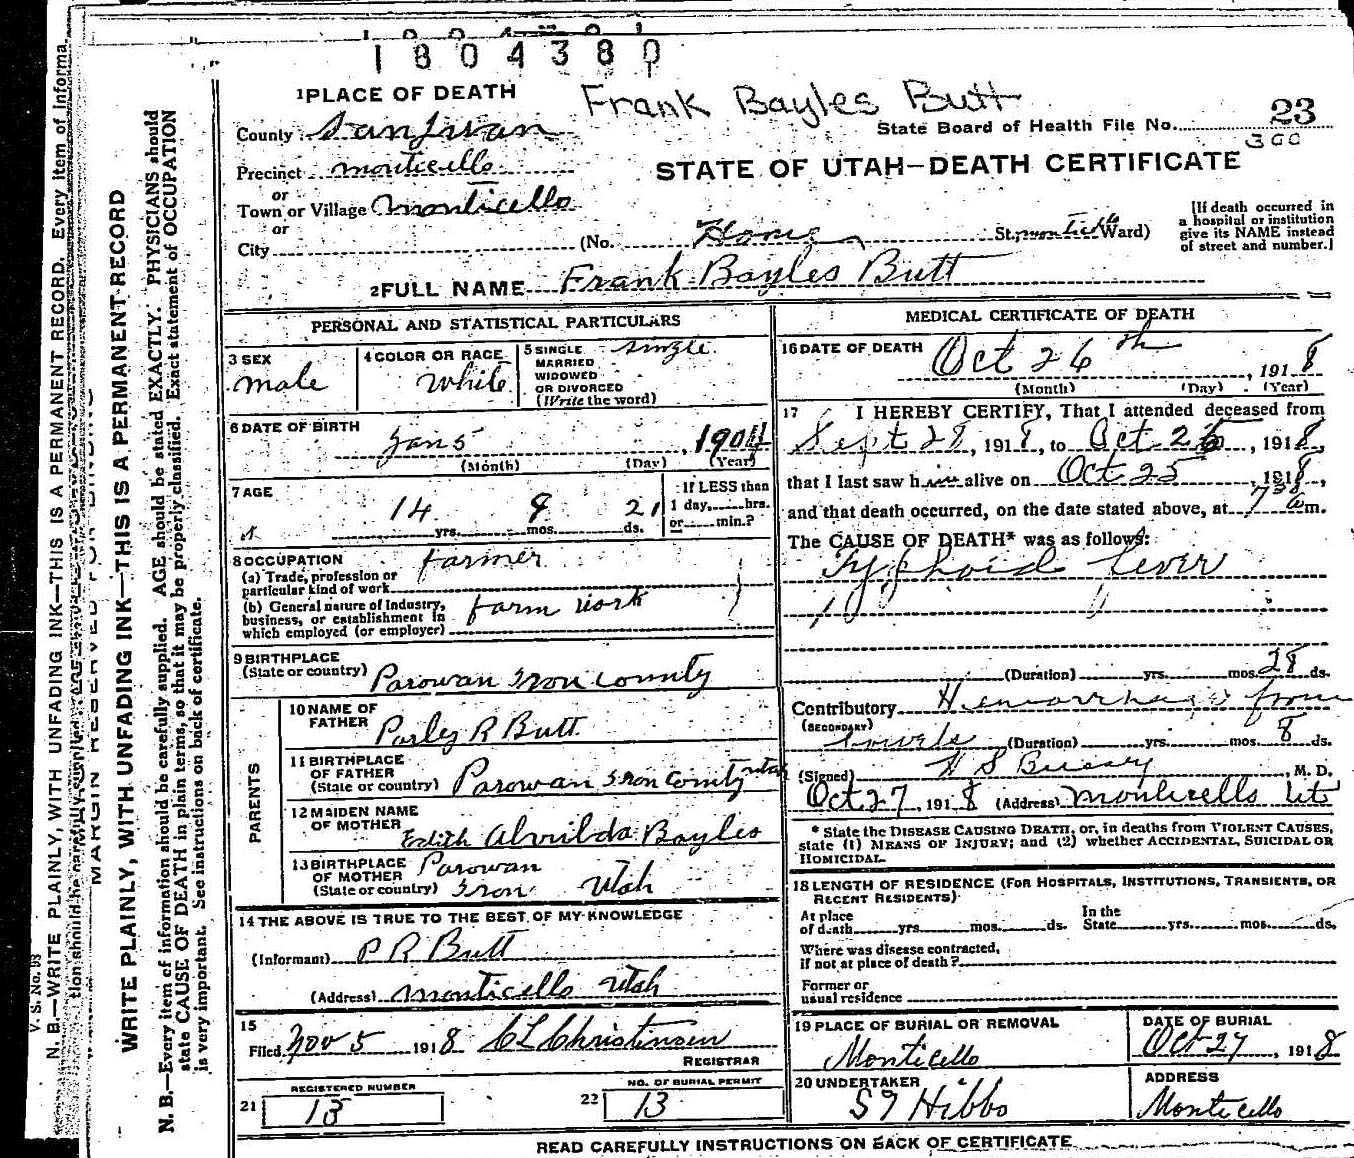 1804380
1 PLACE OF DEATH Frank Bayles Butt
County San Juan State Board of Health File No. 23
300
Precinct Monticello STATE OF UTAH—DEATH CERTIFICATE
or
Town or Village Monticello
or
City (No. Home St. Ward)
[If death occurred in
a hospital or institution
give its NAME instead
of street and number.]
2 FULL NAME Frank Bayles Butt
PERSONAL AND STATISTICAL PARTICULARS
3 SEX
male
4 COLOR OR RACE
White
5 SINGLE
MARRIED
WIDOWED
OR DIVORCED
(Write the word)
single
6 DATE OF BIRTH
Jan 5, 1904
(Month) (Day) (Year)
7 AGE
14 yrs. 9 mos. 21 ds.
If LESS than
1 day, hrs.
or min.?
8 OCCUPATION farmer
(a) Trade, profession or
particular kind of work
(b) General nature of Industry,
business, or establishment in
which employed (or employer) farm work
9 BIRTHPLACE
(State or country) Parowan Iron County
PARENTS
10 NAME OF
FATHER Parley R Butt
11 BIRTHPLACE
OF FATHER
(State or country) Parowan Iron County Utah
12 MAIDEN NAME
OF MOTHER Edith Alvilda Bayles
13 BIRTHPLACE
OF MOTHER
(State or country) Parowan
Iron Utah
14 THE ABOVE IS TRUE TO THE BEST OF MY KNOWLEDGE
(Informant) P R Butt
(Address) Monticello Utah
15
Filed Nov 5 1918 C L Christensen
REGISTRAR
REGISTERED NUMBER
21 13
NO. OF BURIAL PERMIT
22 13
MEDICAL CERTIFICATE OF DEATH
16 DATE OF DEATH Oct 26th, 1918
(Month) (Day) (Year)
17 I HEREBY CERTIFY, That I attended deceased from
Sept 28, 1918, to Oct 26, 1918,
that I last saw him alive on Oct 25, 1918,
and that death occurred, on the date stated above, at m.
The CAUSE OF DEATH* was as follows:
Typhoid fever
(Duration) yrs. mos. 28 ds.
Contributory Hemorrhage from
(SECONDARY)
bowels (Duration) yrs. mos. 8 ds.
(Signed) , M. D.
Oct 27, 1918 (Address) Monticello Ut
* State the DISEASE CAUSING DEATH, or, in deaths from VIOLENT CAUSES,
state (1) MEANS OF INJURY; and (2) whether ACCIDENTAL, SUICIDAL OR
HOMICIDAL.
18 LENGTH OF RESIDENCE (FOR HOSPITALS, INSTITUTIONS, TRANSIENTS, OR
RECENT RESIDENTS)
At place
of death yrs. mos. ds.
In the
State yrs. mos. ds.
Where was disease contracted,
if not at place of death?
Former or
usual residence
19 PLACE OF BURIAL OR REMOVAL
Monticello
DATE OF BURIAL
Oct 27, 1918
20 UNDERTAKER
Hibbs
ADDRESS
Monticello
READ CAREFULLY INSTRUCTIONS ON BACK OF CERTIFICATE
V. S. No. 98
N. B.—WRITE PLAINLY, WITH UNFADING INK—THIS IS A PERMANENT RECORD. Every item of Informa-
MARGIN RESERVED FOR BINDING
WRITE PLAINLY, WITH UNFADING INK—THIS IS A PERMANENT RECORD
N. B.—Every item of information should be carefully supplied. AGE should be stated EXACTLY. PHYSICIANS should
state CAUSE OF DEATH in plain terms, so that it may be properly classified. Exact statement of OCCUPATION
is very important. See instructions on back of certificate.